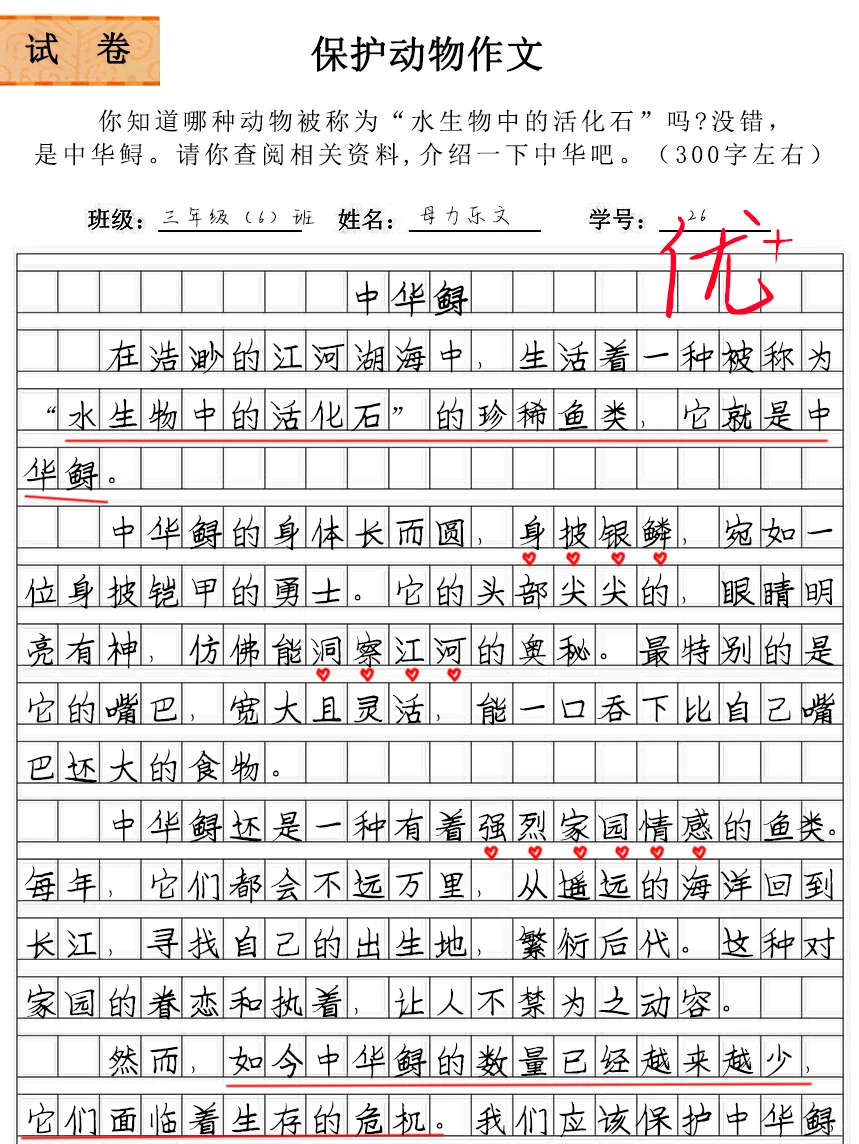 试 卷
保护动物作文
你知道哪种动物被称为“水生物中的活化石”吗?没错，
是中华鲟。请你查阅相关资料,介绍一下中华吧。（300字左右）
班级：三年级（6）班 姓名：母力乐文 学号：26
优+
中华鲟
在浩渺的江河湖海中，生活着一种被称为
“水生物中的活化石”的珍稀鱼类，它就是中
华鲟。
中华鲟的身体长而圆，身披银鳞，宛如一
位身披铠甲的勇士。它的头部尖尖的，眼睛明
亮有神，仿佛能洞察江河的奥秘。最特别的是
它的嘴巴，宽大且灵活，能一口吞下比自己嘴
巴还大的食物。
中华鲟还是一种有着强烈家园情感的鱼类。
每年，它们都会不远万里，从遥远的海洋回到
长江，寻找自己的出生地，繁衍后代。这种对
家园的眷恋和执着，让人不禁为之动容。
然而，如今中华鲟的数量已经越来越少，
它们面临着生存的危机。我们应该保护中华鲟